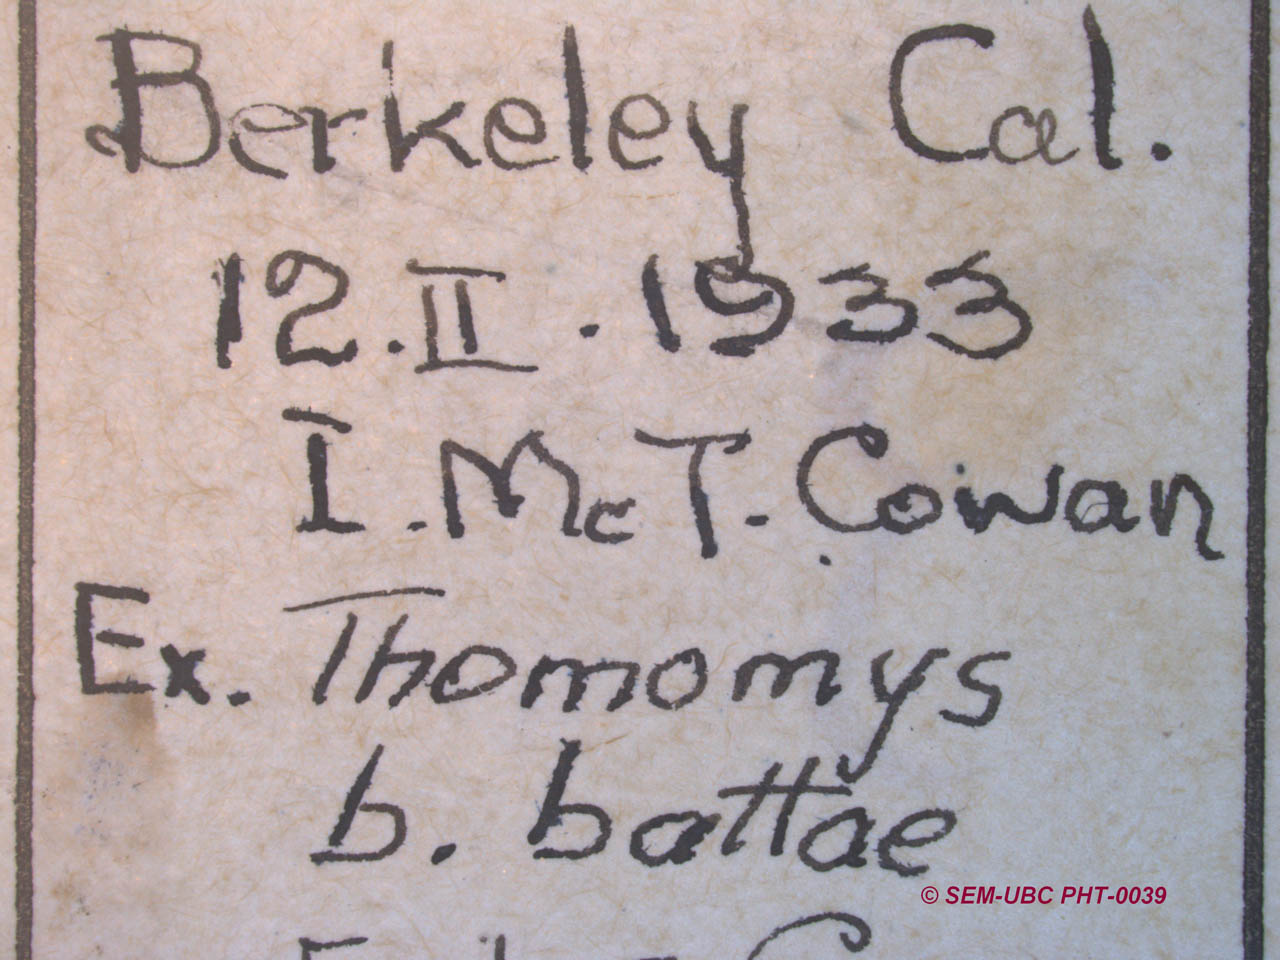 Berkeley Cal.
12.II.1933
I. McT. Cowan
Ex. Thomomys
b. battae
© SEM-UBC PHT-0039